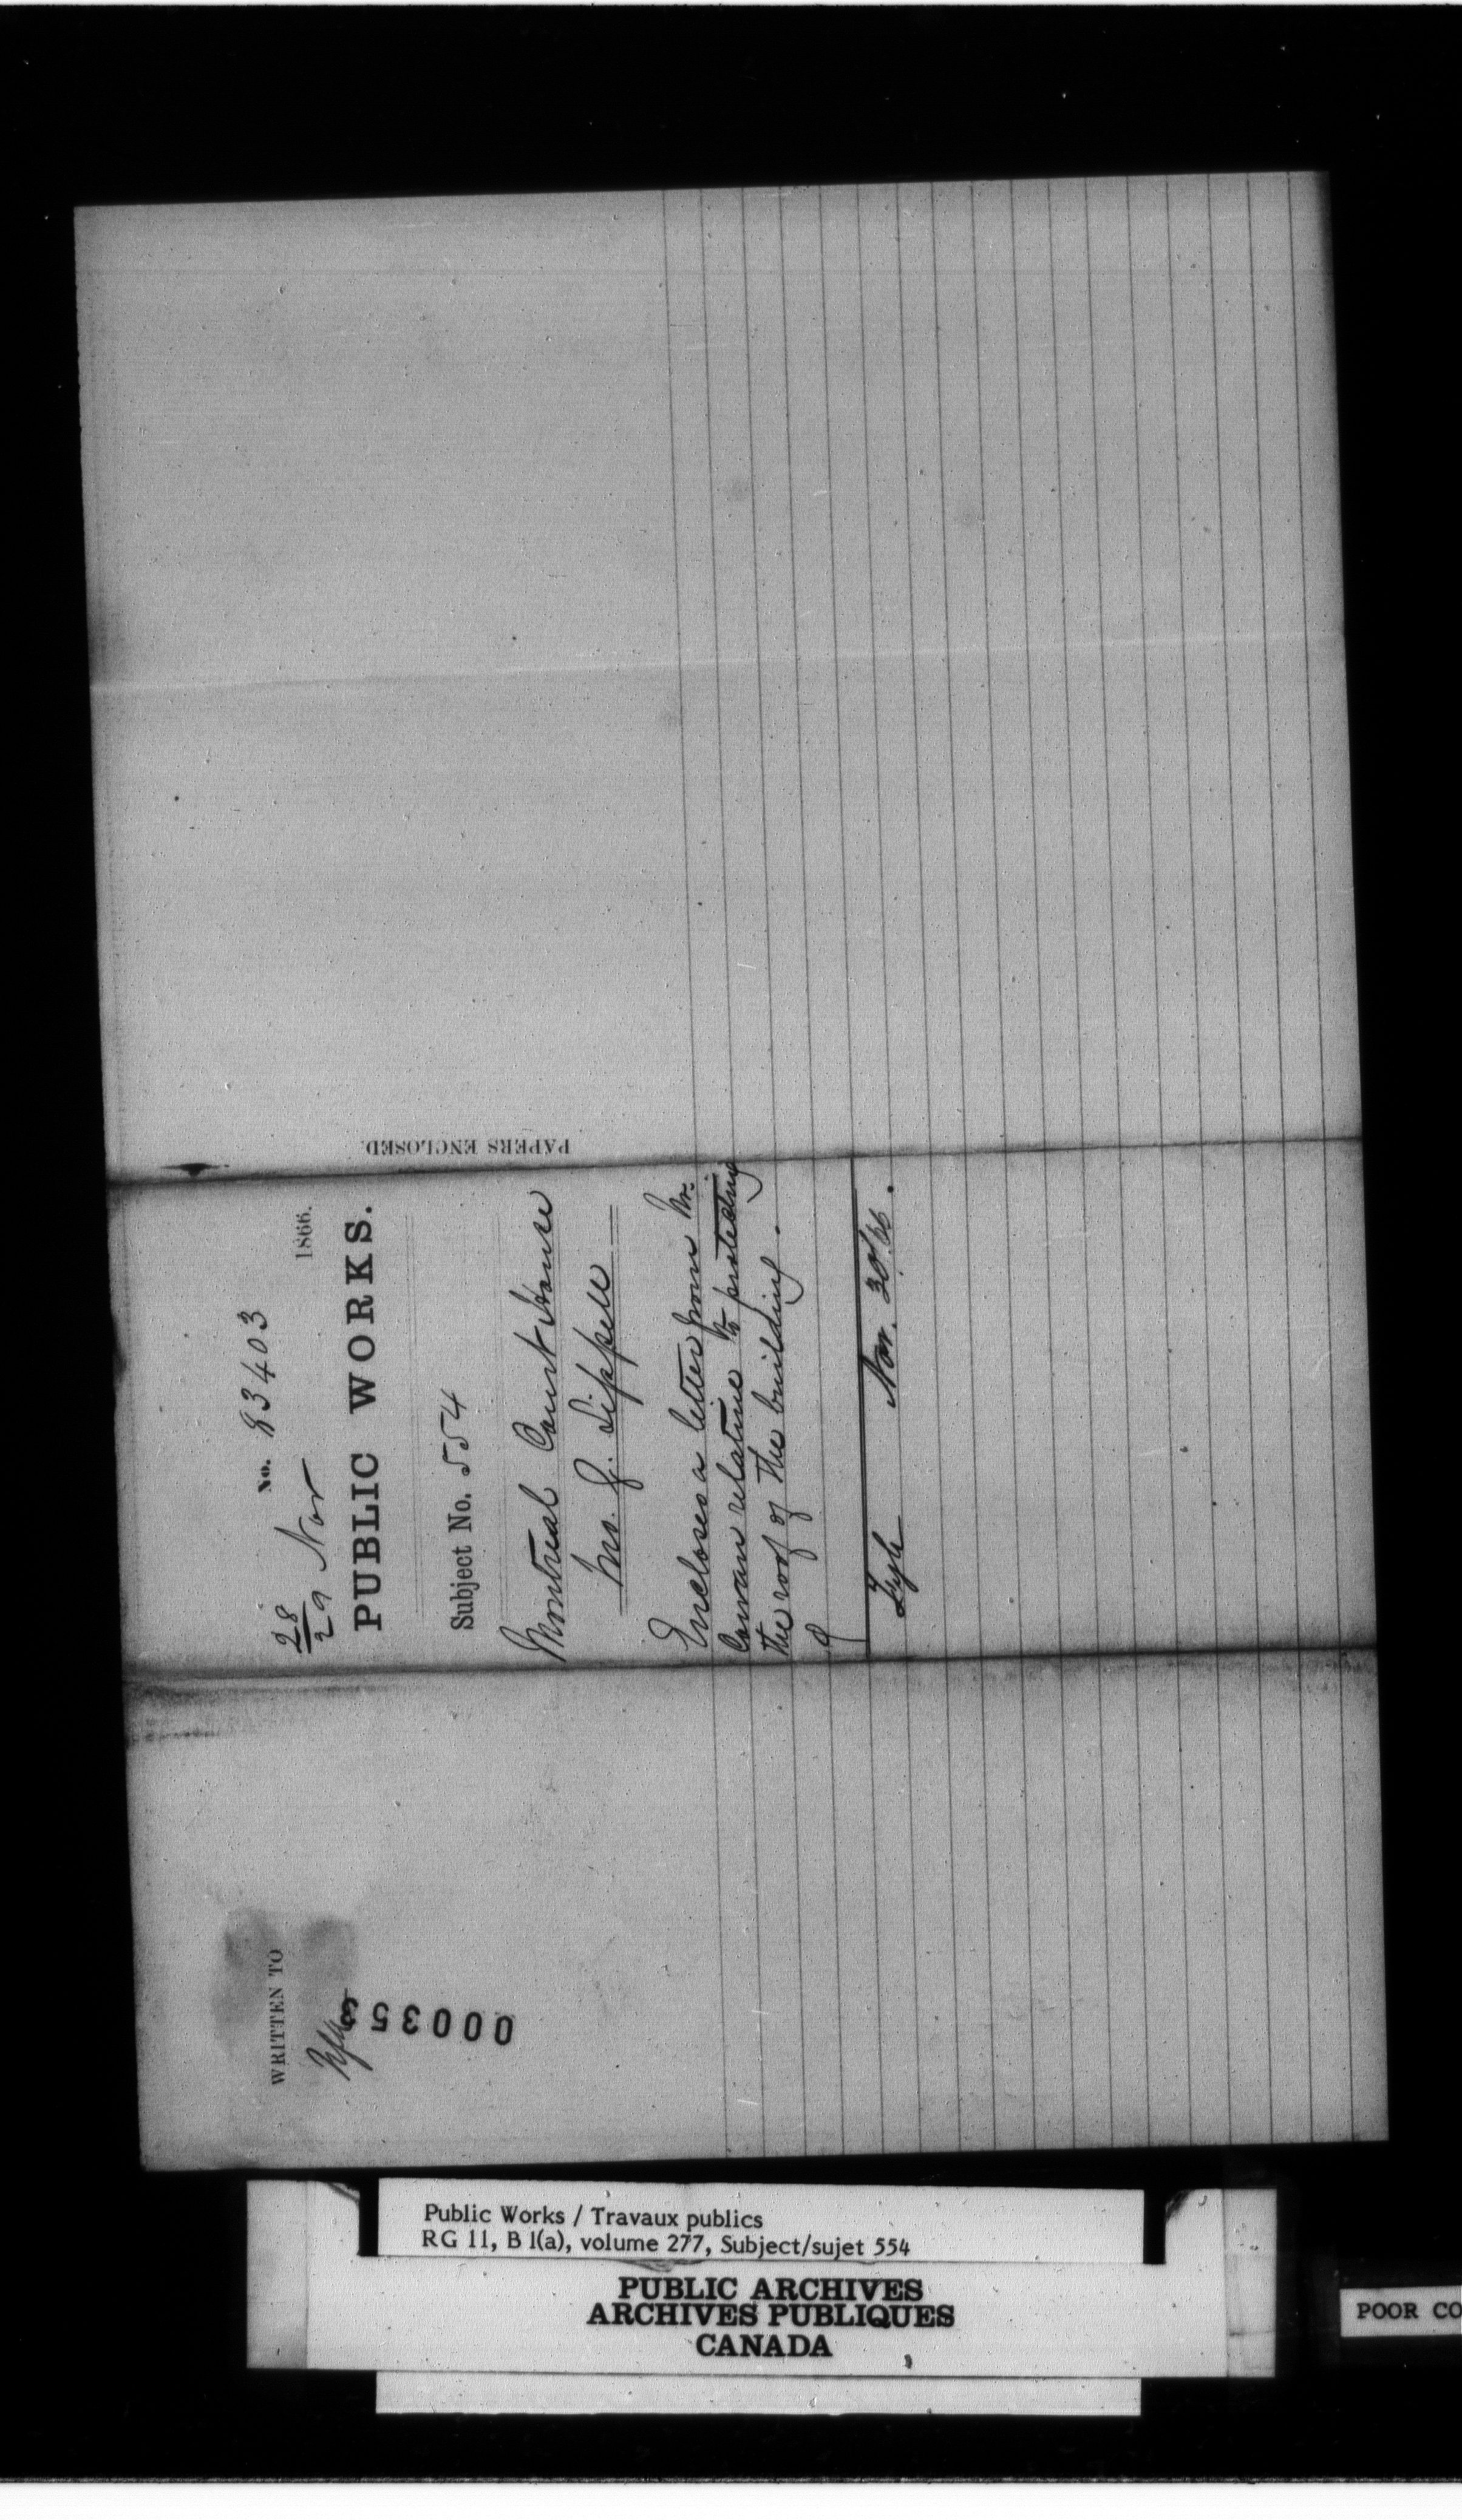 No. 83403
28
29 Nov 1866.
PUBLIC WORKS.
Subject No. 554
Montreal Court House
Mr. J. Sippell
Encloses a letter from Mr.
Cowan relative to protecting
the roof of the building.
Fyle Nov. 30/66.
PAPERS ENCLOSED.
WRITTEN TO
00035
Public Works / Travaux publics
RG 11, B 1(a), volume 277, Subject/sujet 554
PUBLIC ARCHIVES
ARCHIVES PUBLIQUES
CANADA
POOR CO